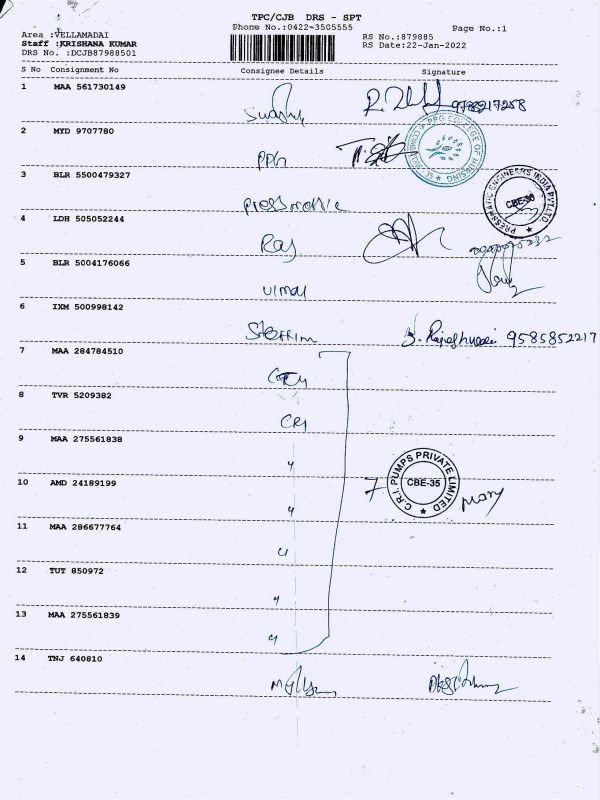 TPC/CJB DRS - SPT
Phone No.:0422-3505555
Page No.:1
Area :VELLAMADAI
RS No.:879885
Staff :KRISHANA KUMAR
RS Date:22-Jan-2022
DRS No. :DCJB87988501
S No Consignment No Consignee Details Signature
1 MAA 561730149
9788217258
2 MYD 9707780
PPG
PPG COLLEGE OF NURSING
3 BLR 5500479327
Pressmatic
PRESSMATIC ENGINEERS INDIA PVT.LTD
CBE-35
4 LDH 505052244
Raj
5 BLR 5004176066
Vimal
6 IXM 500998142
9585852217
7 MAA 284784510
8 TVR 5209382
CRI
9 MAA 275561838
"
10 AMD 24189199
"
C.R.I. PUMPS PRIVATE LIMITED
CBE-35
7
11 MAA 286677764
"
12 TUT 850972
"
13 MAA 275561839
"
14 TNJ 640810